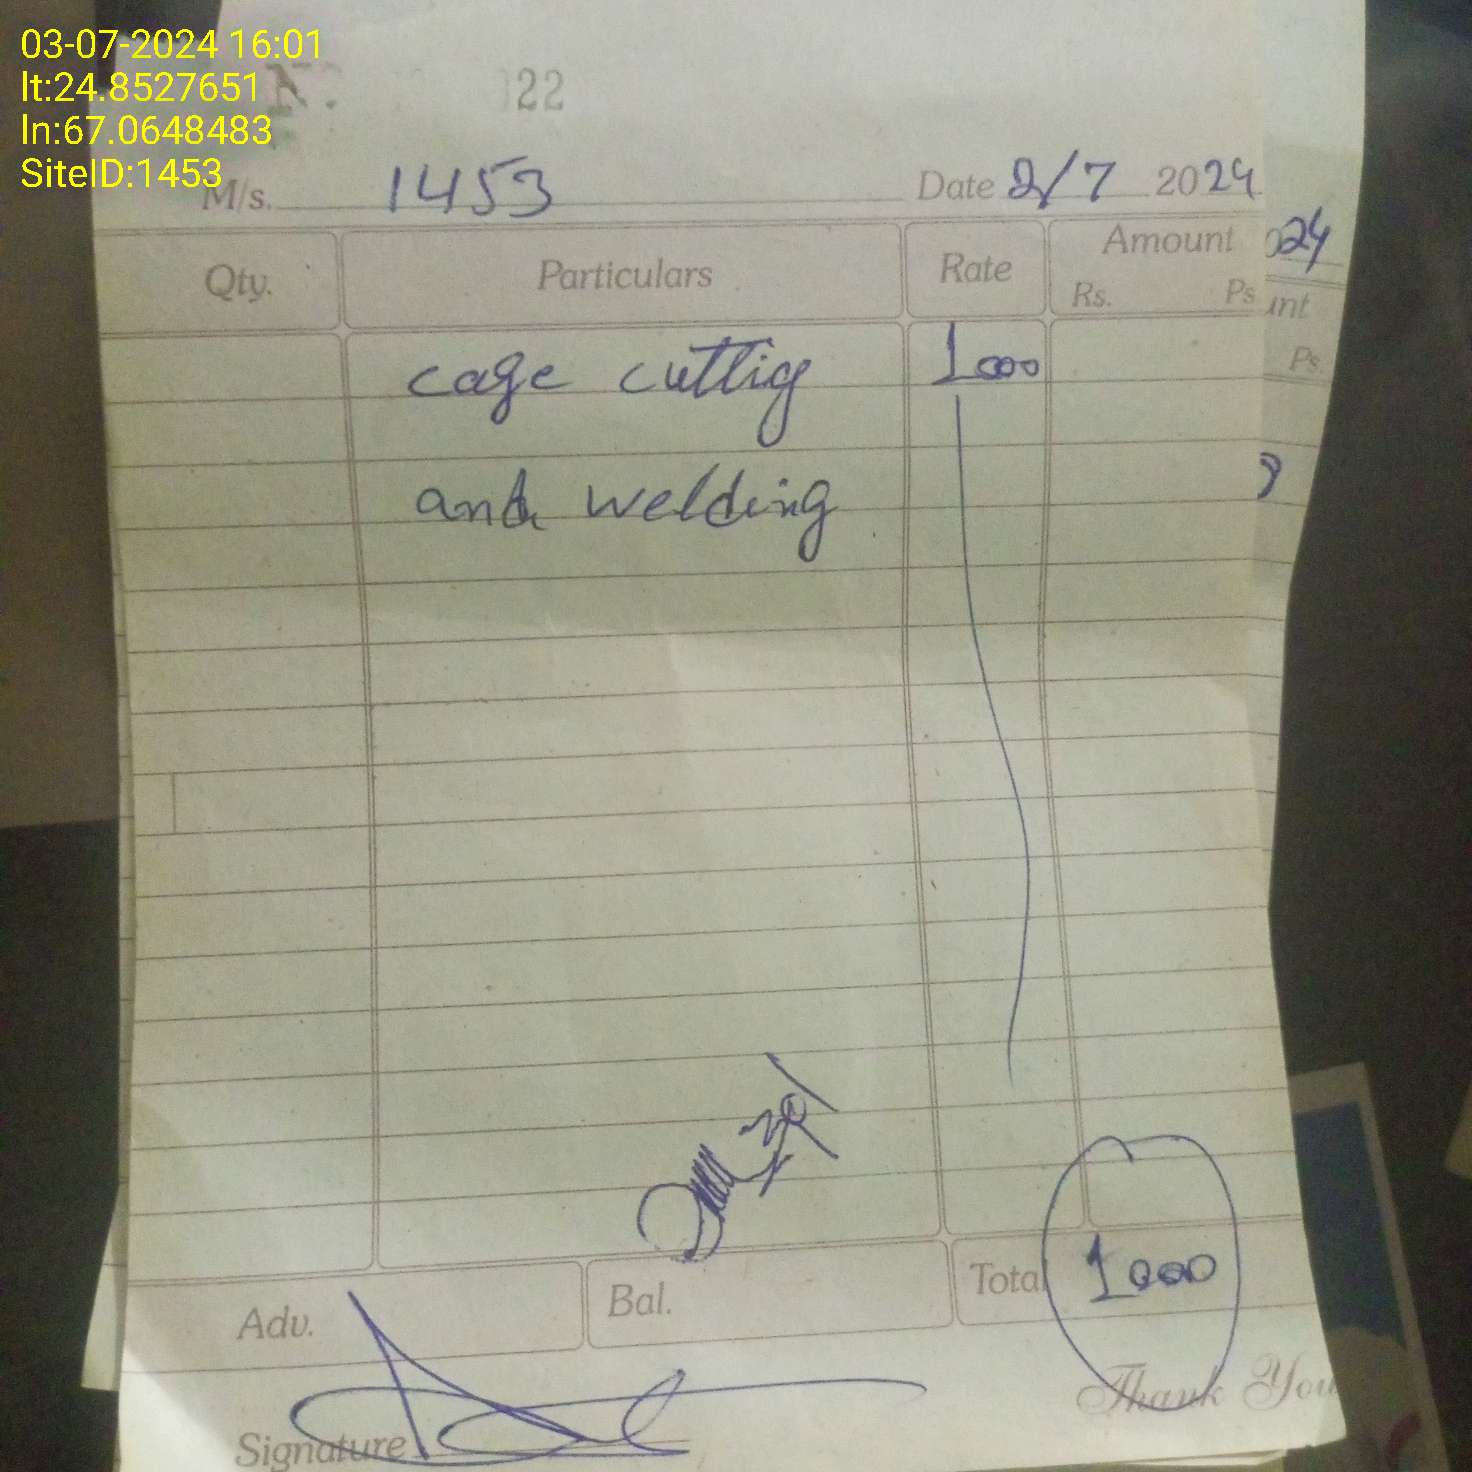 03-07-2024 16:01
lt:24.8527651
ln:67.0648483
SiteID:1453
22
M/s. 1453 Date 2/7 2024
024
Qty. Particulars Rate Amount
Rs. Ps
unt
Ps.
cage cuttig 1000
and welding
Adv. Bal. Total 1000
Thank You
Signature